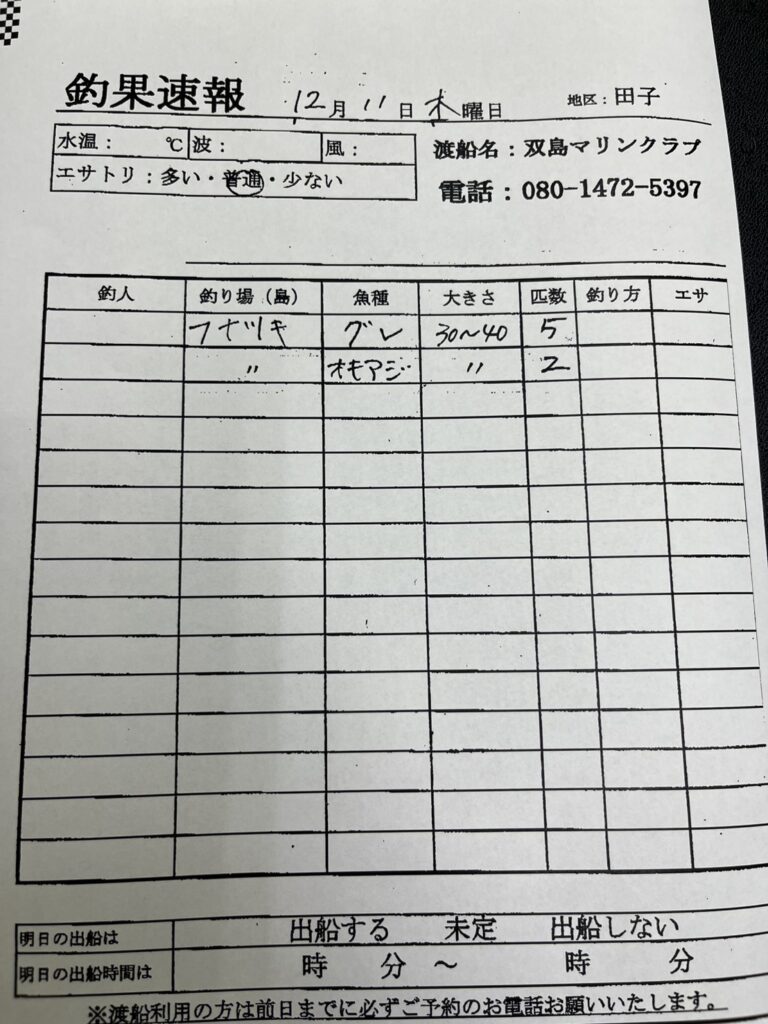 釣果速報 12月 11日 木曜日 地区：田子
水温： ℃ 波： 風：
渡船名：双島マリンクラブ
エサトリ：多い・普通・少ない
電話：080-1472-5397
釣人 釣り場（島） 魚種 大きさ 匹数 釣り方 エサ
フナツキ グレ 30〜40 5
〃 オキアジ 〃 2
明日の出船は 出船する 未定 出船しない
明日の出船時間は 時 分 〜 時 分
※渡船利用の方は前日までに必ずご予約のお電話お願いいたします。